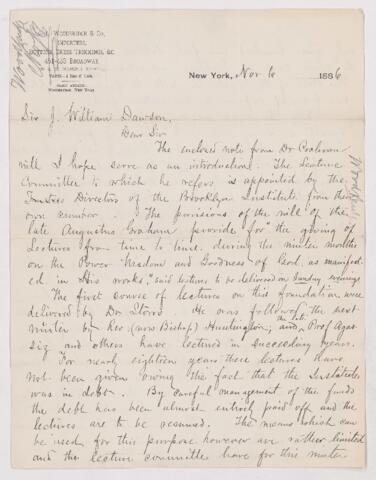 Woodward & Co.
Importers,
Buttons, Dress Trimmings, &c.
Broadway
New York, Nov 6 1886
Sir J. William Dawson,
Dear Sir
The enclosed note from Dr Cochran
will I hope serve as an introduction. The Lecture
Committee to which he refers is appointed by the
Directors of the Brooklyn Institute from their
own number. The provisions of the will of the
late Augustus Graham provide for "the giving of
Lectures from time to time during the winter months
on the Power Wisdom and Goodness of God, as manifest-
ed in His works," said lectures to be delivered on Sunday evenings
The first course of lectures on this foundation were
delivered by Dr. Storrs. He was followed the next
winter by Rev (now Bishop) Huntington, and the late Prof Agas-
siz and others have lectured in succeeding years.
For nearly eighteen years these lectures have
not been given owing the fact that the Institute
was in debt. By careful management of the funds
the debt has been almost entirely paid off and the
lectures are to be resumed. The means which can
be used for this purpose however are rather limited
and the lecture committee have for this winter